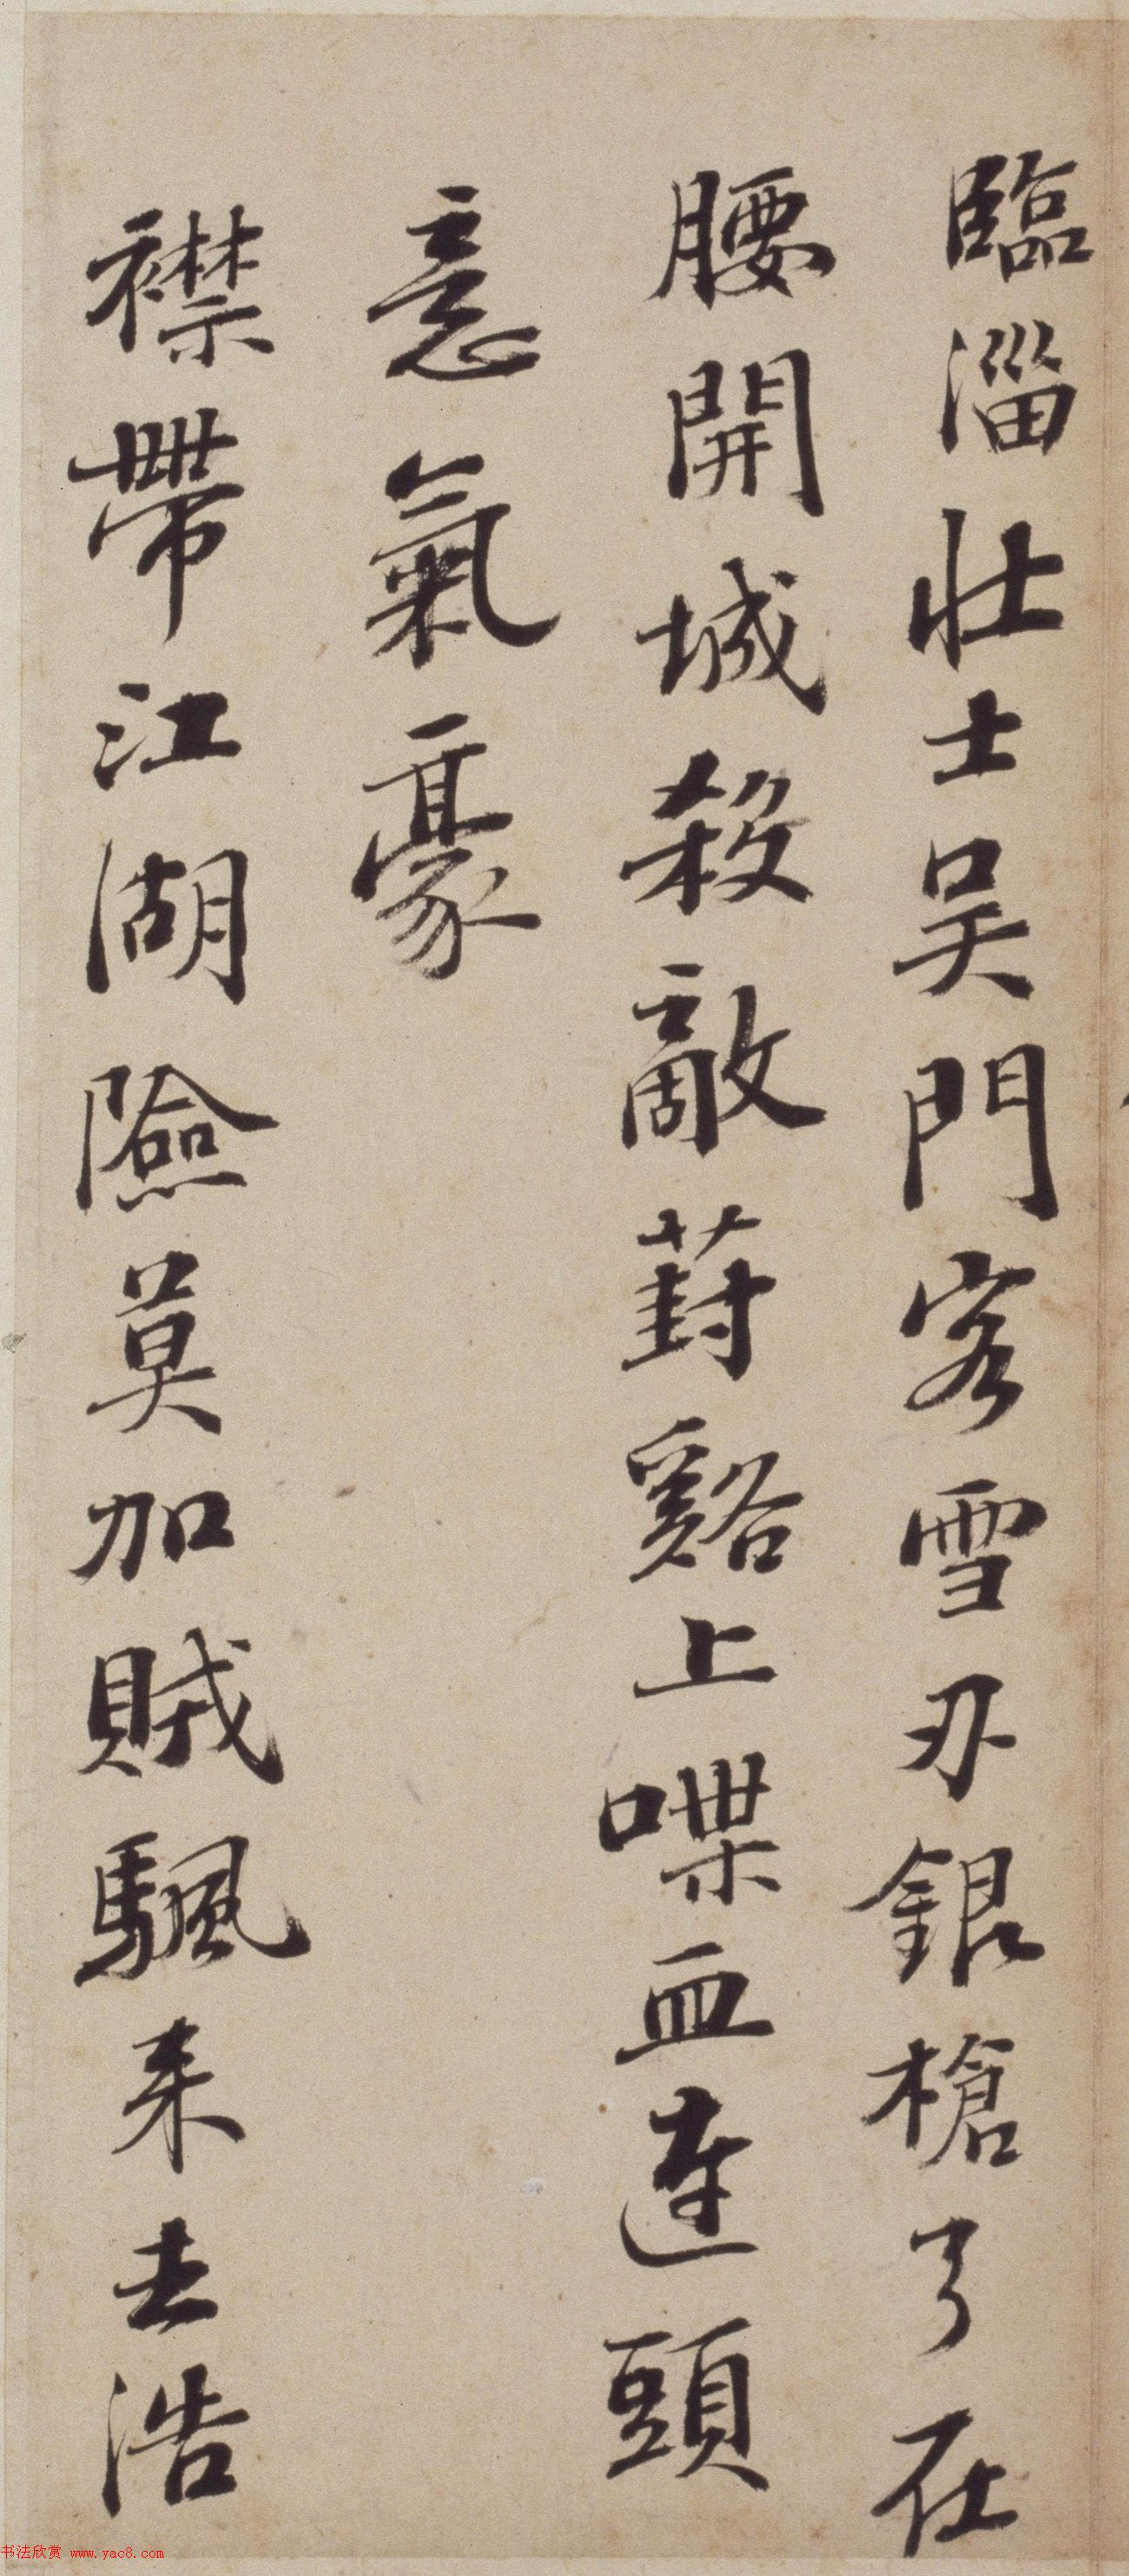 臨淄壯士吴門客雪刃銀槍了在
腰開城殺敵葑谿上喋血連頭
意氣豪
襟帶江湖險莫加賊颿来去浩
书法欣赏 www.yac8.com